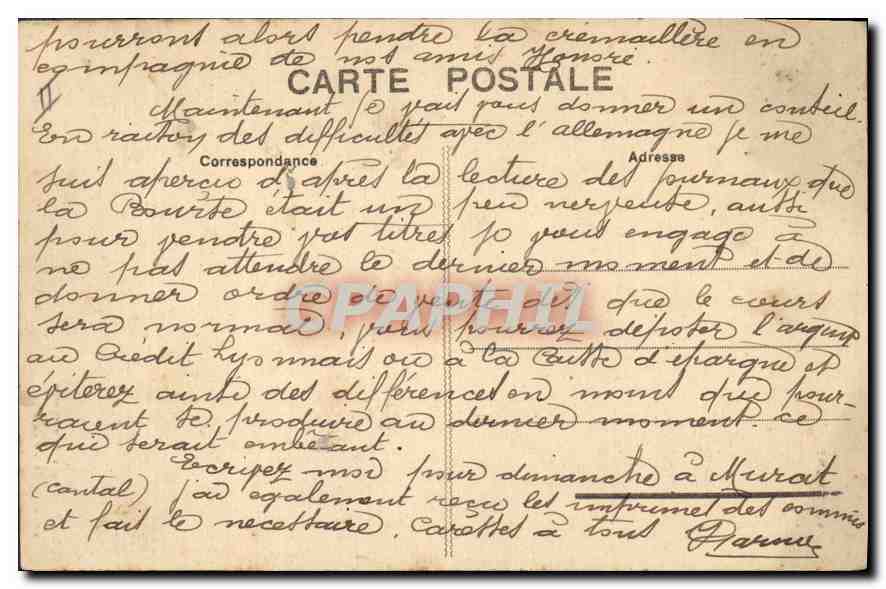 pourront alors pendre la crémaillère en
compagnie de nos amis Honoré.
CARTE POSTALE
II
Maintenant je vais vous donner un conseil.
En raison des difficultés avec l'allemagne je me
Correspondance
Adresse
suis aperçu d'après la lecture des journaux que
la Bourse était un peu nerveuse, aussi
pour vendre vos titres je vous engage à
ne pas attendre le dernier moment et de
donner ordre de vente dès que le cours
sera normal, vous pourrez déposer l'argent
au Crédit Lyonnais ou à la Caisse d'épargne et
éviterez ainsi des différences en moins qui pour-
raient se produire au dernier moment ce
qui serait embêtant.
Ecrivez moi pour dimanche à Murat
(Cantal) j'ai également reçu les imprimés des commis
et fait le nécessaire. Caresses à tous
CPAPHIL